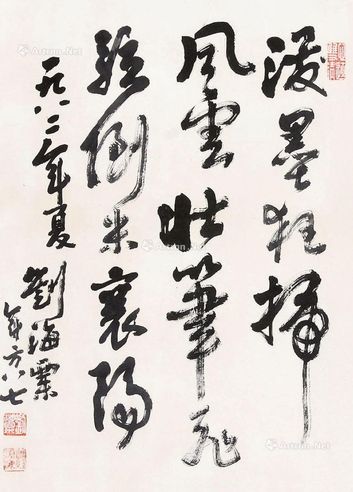 潑墨狂掃
風雲壯筆飛
駭倒米襄陽
一九八二年夏
劉海粟
年方八七
Artron.Net